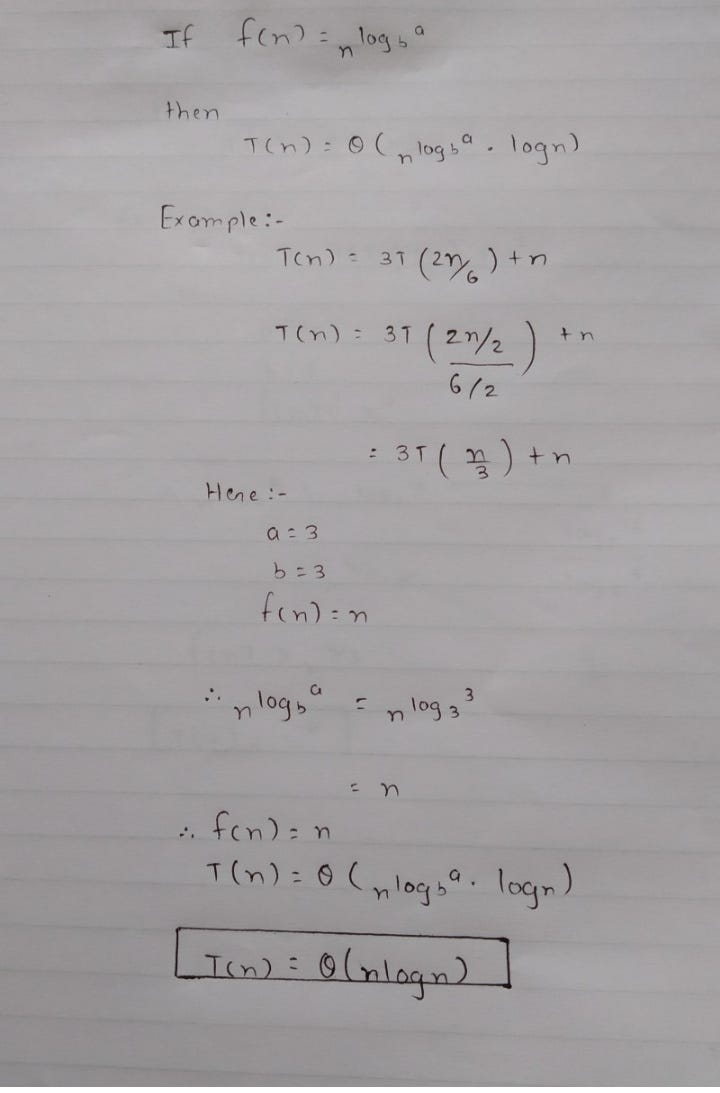 If f(n) = n^log_b a
then
T(n) = θ(n^log_b a . logn)
Example:-
T(n) = 3T(2n/6) + n
T(n) = 3T((2n/2)/(6/2)) + n
= 3T(n/3) + n
Here:-
a = 3
b = 3
f(n) = n
∴ n^log_b a = n^log_3 3
= n
∴ f(n) = n
T(n) = θ(n^log_b a . logn)
T(n) = θ(nlogn)